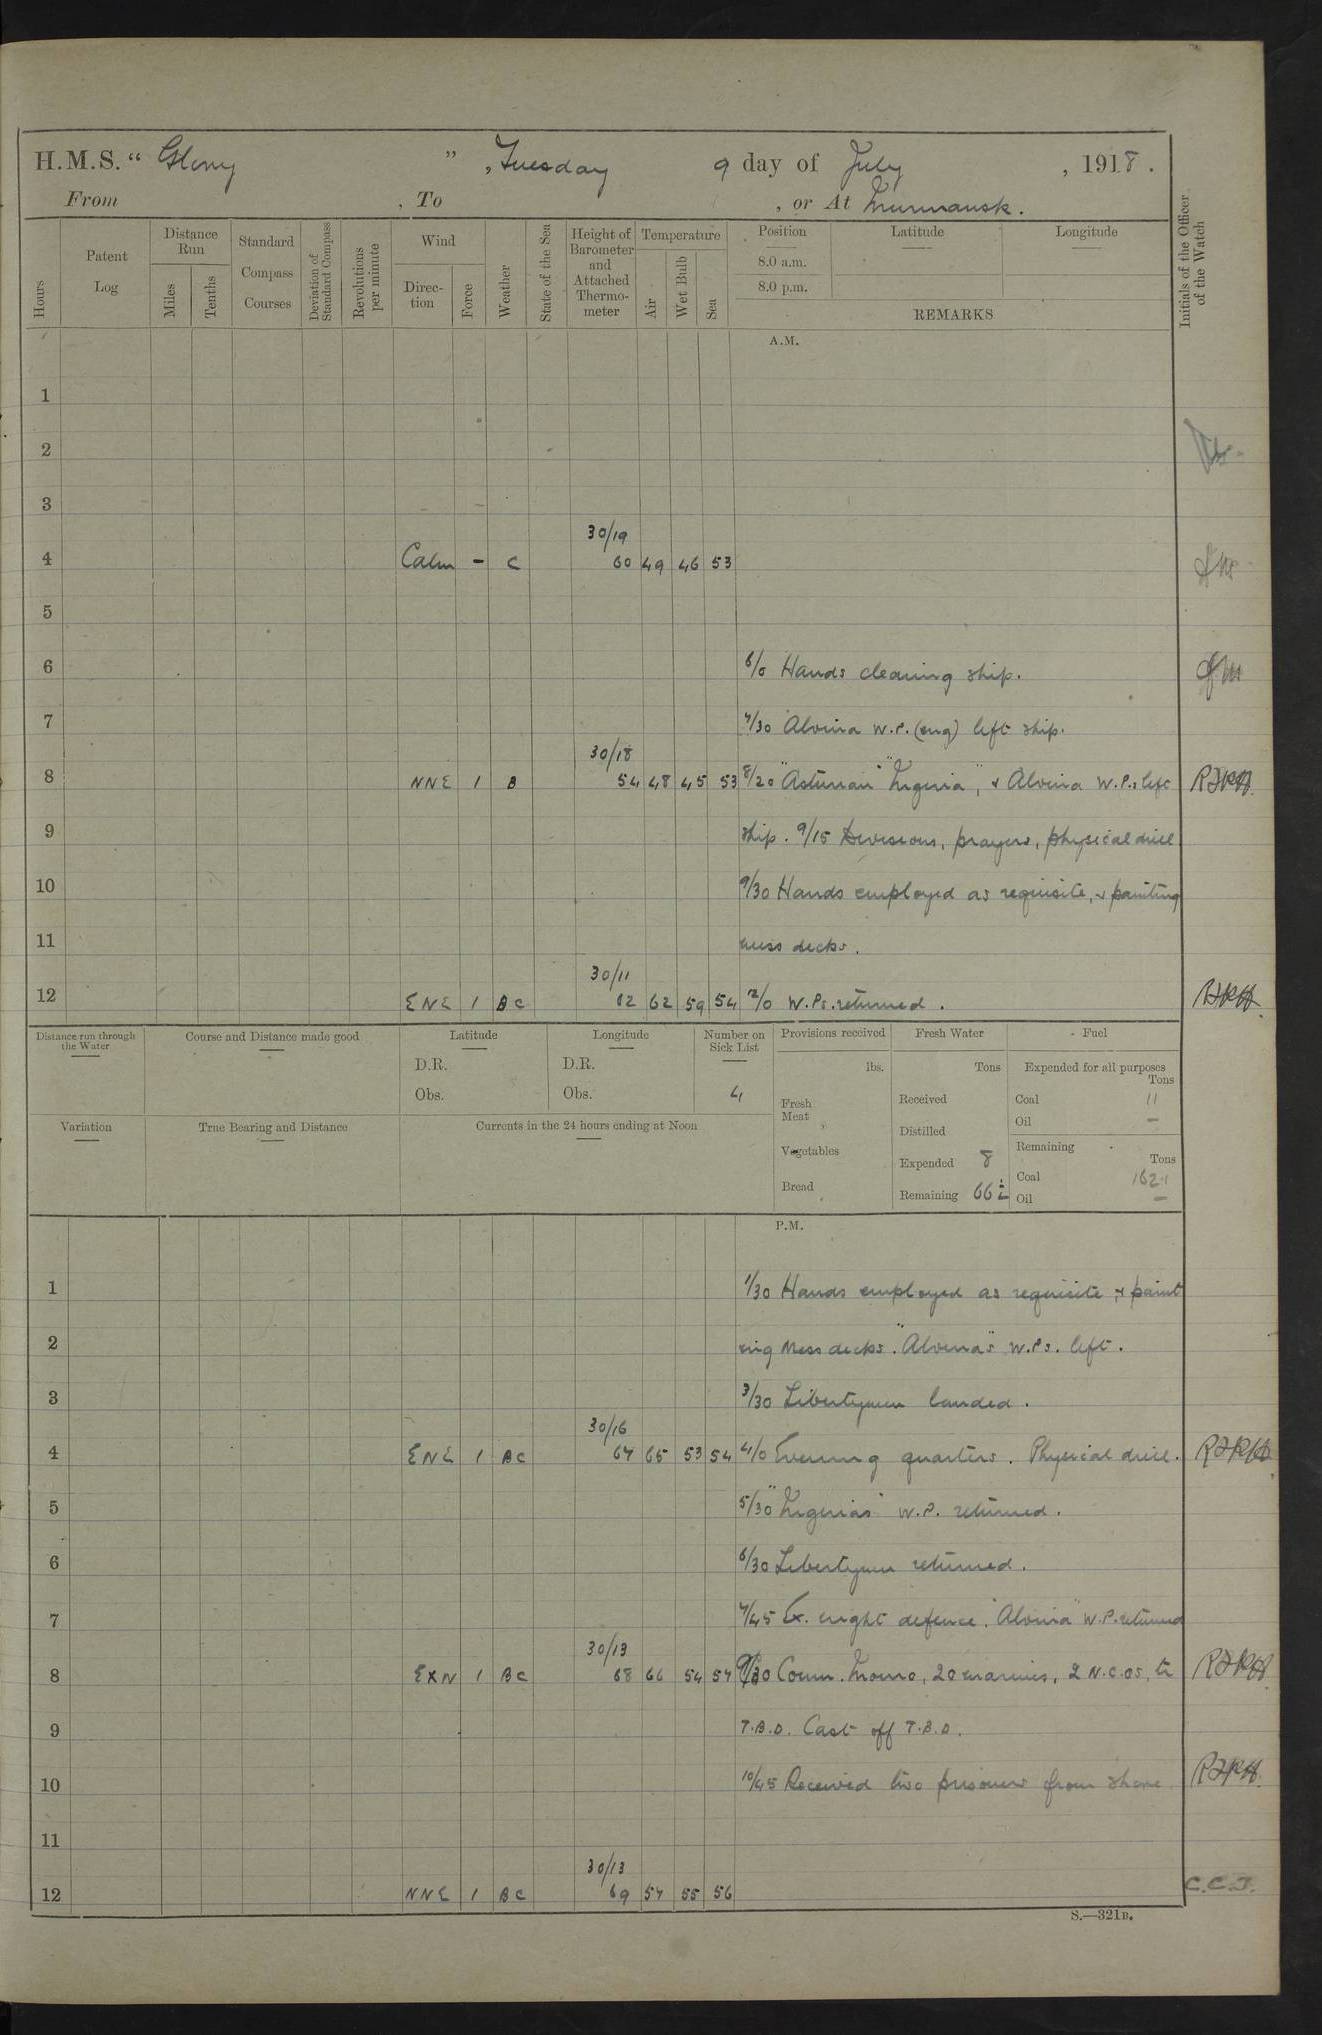 H.M.S. "Glory", Tuesday 9 day of July, 1918.
From , To , or At Murmansk.
Hours
Patent Log
Distance Run
Miles
Tenths
Standard Compass Courses
Deviation of Standard Compass
Revolutions per minute
Wind
Direc-tion
Force
Weather
State of the Sea
Height of Barometer and Attached Thermo-meter
Temperature
Air
Wet Bulb
Sea
Position
8.0 a.m.
8.0 p.m.
Latitude
Longitude
REMARKS
Initials of the Officer of the Watch
A.M.
1
2
3
30/19
4 Calm - C 60 49 46 53
5
6 6/0 Hands cleaning ship.
7 7/30 Alvina W.P. (eng) left ship.
30/18
8 NNE 1 B 54 48 45 53 8/20 "Asturian" "Nigeria", & Alvina W.P.s left
9 ship. 9/15 Divisions, prayers, physical drill
10 9/30 Hands employed as requisite, & painting
11 mess decks.
30/11
12 ENE 1 BC 62 62 59 54 12/0 W.Ps. returned.
Distance run through the Water
Course and Distance made good
Latitude
D.R.
Obs.
Longitude
D.R.
Obs.
Number on Sick List
4
Provisions received
lbs.
Fresh Meat
Vegetables
Bread
Fresh Water
Tons
Received
Distilled
Expended 8
Remaining 662
Fuel
Expended for all purposes
Tons
Coal 11
Oil -
Remaining
Tons
Coal 1621
Oil -
Variation
True Bearing and Distance
Currents in the 24 hours ending at Noon
P.M.
1 1/30 Hands employed as requisite & paint
2 ing Mess decks. "Alvina's" W.Ps. left.
3 3/30 Libertymen landed.
30/16
4 ENE 1 BC 67 65 53 54 4/0 Evening quarters. Physical drill.
5 5/30 "Nigerias" W.P. returned.
6 6/30 Libertymen returned.
7 7/45 Ex. night defence. "Alvina" W.P. returned
30/13
8 ExN 1 BC 68 66 54 57 9/30 Comm. , 20 marines, 2 N.C.OS. to
9 T.B.D. Cast off T.B.D.
10 10/45 Received two prisoners from shore
11
30/13
12 NNE 1 BC 69 57 55 56 C.C.J.
S.—321B.